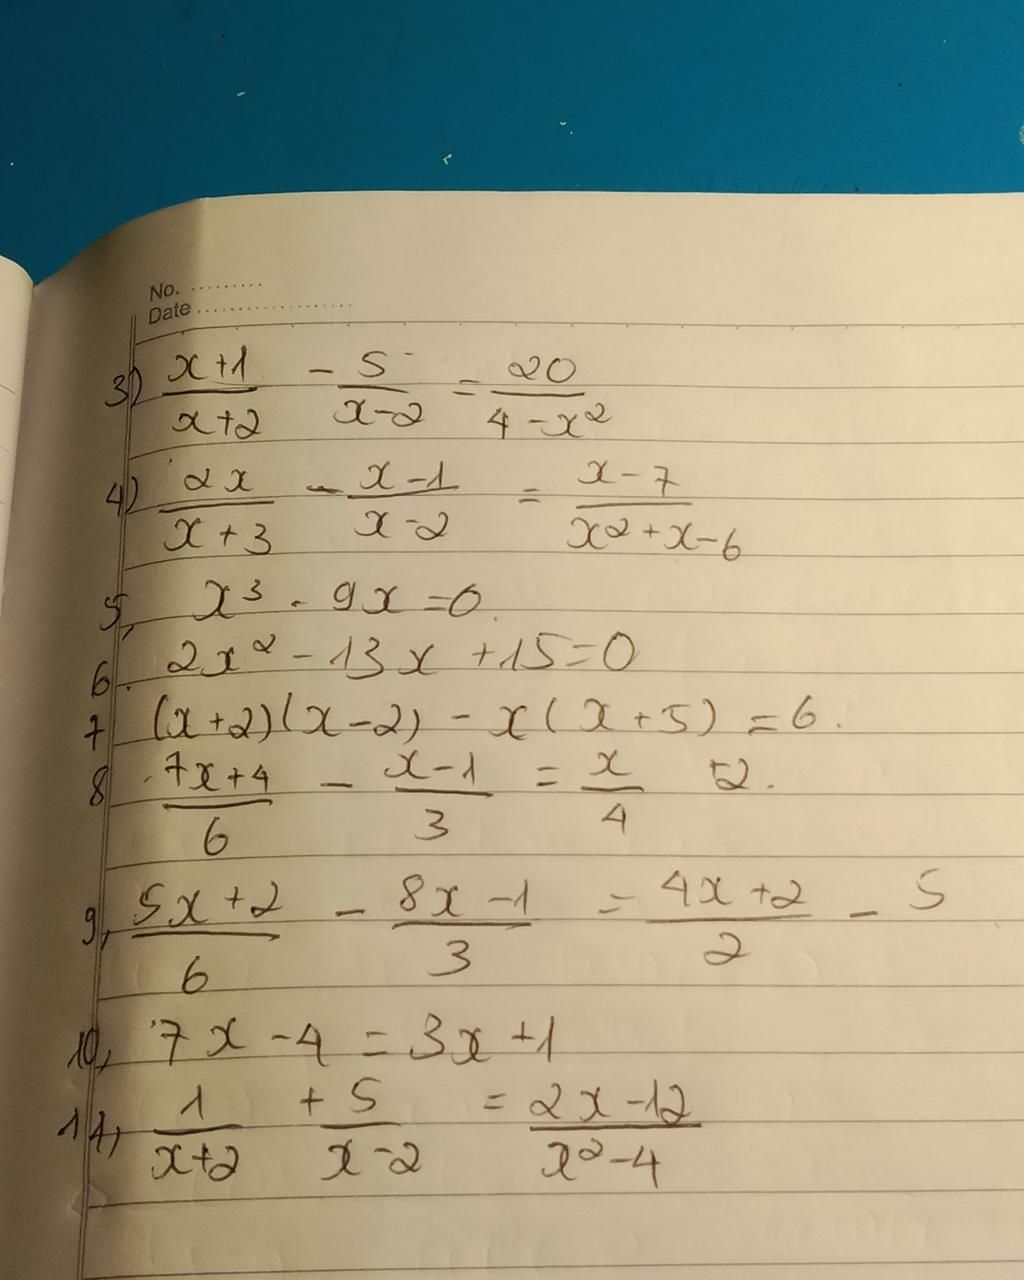 No. .........
Date ...................
3) \frac{x+1}{x+2} - \frac{5}{x-2} = \frac{20}{4-x^2}
4) \frac{2x}{x+3} - \frac{x-1}{x-2} = \frac{x-7}{x^2+x-6}
5, x^3 - 9x = 0.
6. 2x^2 - 13x + 15 = 0
7 (x+2)(x-2) - x(x+5) = 6.
8 \frac{7x+4}{6} - \frac{x-1}{3} = \frac{x}{4} 52.
9, \frac{5x+2}{6} - \frac{8x-1}{3} = \frac{4x+2}{2} - 5
10, 7x - 4 = 3x + 1
11, \frac{1}{x+2} + \frac{5}{x-2} = \frac{2x-12}{x^2-4}